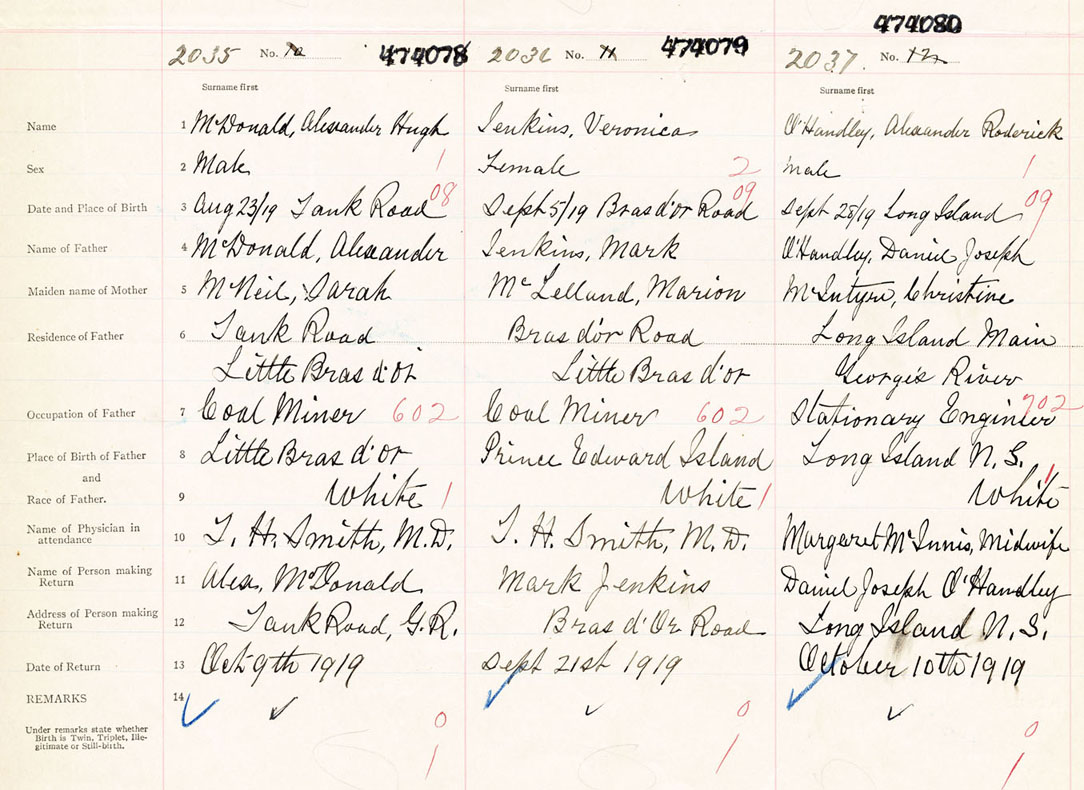 474080
2035 No. 10 474078 2036 No. 11 474079 2037. No. 12
Surname first Surname first Surname first
Name 1 McDonald, Alexander Hugh Jenkins, Veronica O'Handley, Alexander Roderick
Sex 2 Male 1 Female 2 Male 1
Date and Place of Birth 3 Aug 23/19 Tank Road 08 Sept 5/19 Bras d'or Road 09 Sept 28/19 Long Island 09
Name of Father 4 McDonald, Alexander Jenkins, Mark O'Handley, Daniel Joseph
Maiden name of Mother 5 McNeil, Sarah McLelland, Marion McIntyre, Christine
Residence of Father 6 Tank Road Bras d'or Road Long Island Main
Little Bras d'or Little Bras d'or George's River
Occupation of Father 7 Coal Miner 602 Coal Miner 602 Stationary Engineer 702
Place of Birth of Father 8 Little Bras d'or Prince Edward Island Long Island N.S.
and
Race of Father. 9 White 1 White 1 White 1
Name of Physician in
attendance 10 T. H. Smith, M.D. T. H. Smith, M.D. Margaret McInnis, Midwife
Name of Person making
Return 11 Alex. McDonald Mark Jenkins Daniel Joseph O'Handley
Address of Person making
Return 12 Tank Road, G.R. Bras d'Or Road Long Island N.S.
Date of Return 13 Oct 9th 1919 Sept 21st 1919 October 10th 1919
REMARKS 14
Under remarks state whether
Birth is Twin, Triplet, Ille-
gitimate or Still-birth.
0 0 0
1 1 1